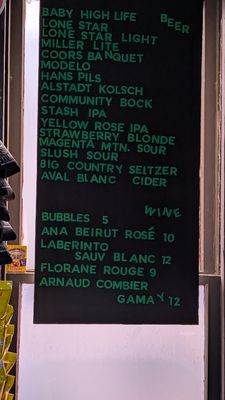 BEER
BABY HIGH LIFE
LONE STAR
LONE STAR LIGHT
MILLER LITE
COORS BANQUET
MODELO
HANS PILS
ALSTADT KOLSCH
COMMUNITY BOCK
STASH IPA
YELLOW ROSE IPA
STRAWBERRY BLONDE
MAGENTA MTN. SOUR
SLUSH SOUR
BIG COUNTRY SELTZER
AVAL BLANC CIDER
WINE
BUBBLES 5
ANA BEIRUT ROSÉ 10
LABERINTO
SAUV BLANC 12
FLORANE ROUGE 9
ARNAUD COMBIER
GAMAY 12